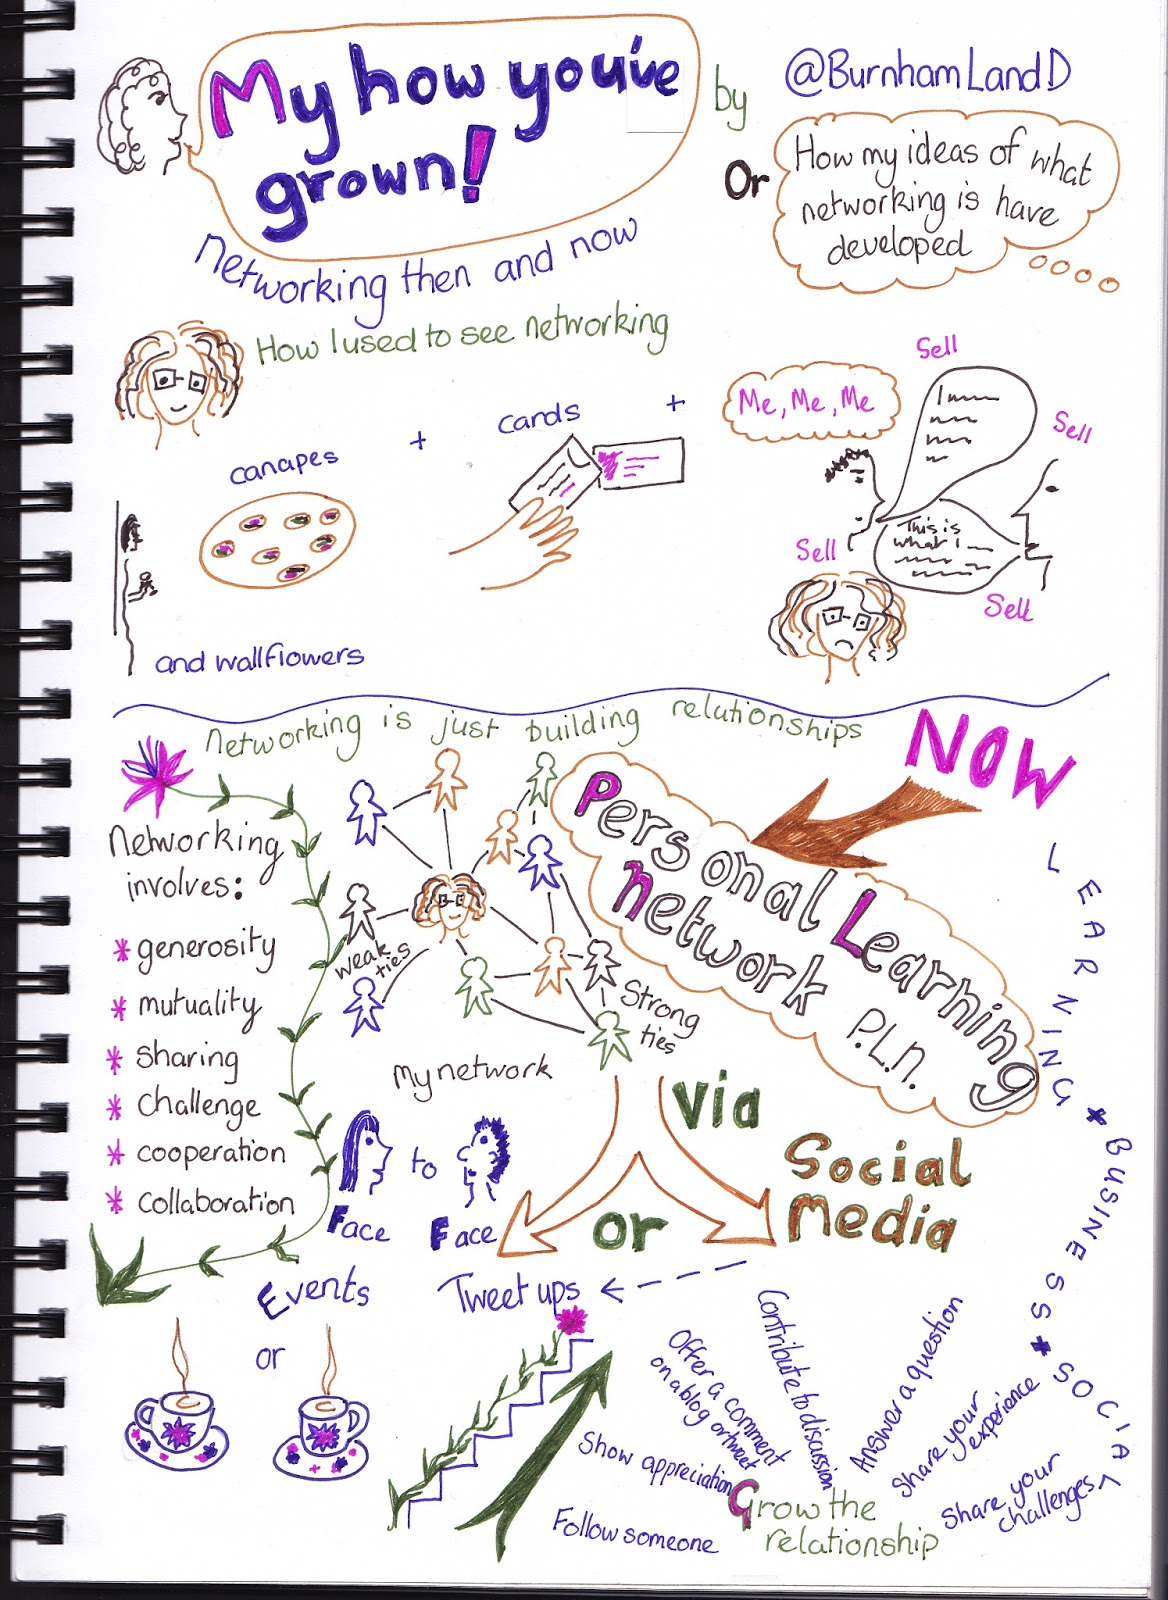 My how you've
grown!
by
@BurnhamLandD
Or
How my ideas of what
networking is have
developed
Networking then and now
How I used to see networking
canapes
+
cards
+
Me, Me, Me
Sell
Sell
Sell
Sell
I
This is
what i
and wallflowers
Networking is just building relationships
NOW
Personal Learning
Network P.L.N.
Networking
involves:
* generosity
* mutuality
* sharing
* challenge
* cooperation
* collaboration
weak
ties
Strong
ties
My network
via
Face to Face
or
Social
Media
LEARNING * BUSINESS * SOCIAL
Events
or
Tweet ups
Follow someone
Show appreciation
Offer a comment
on a blog or tweet
Contribute to discussion
Answer a question
Share your
experience
Share your
challenges
Grow the
relationship